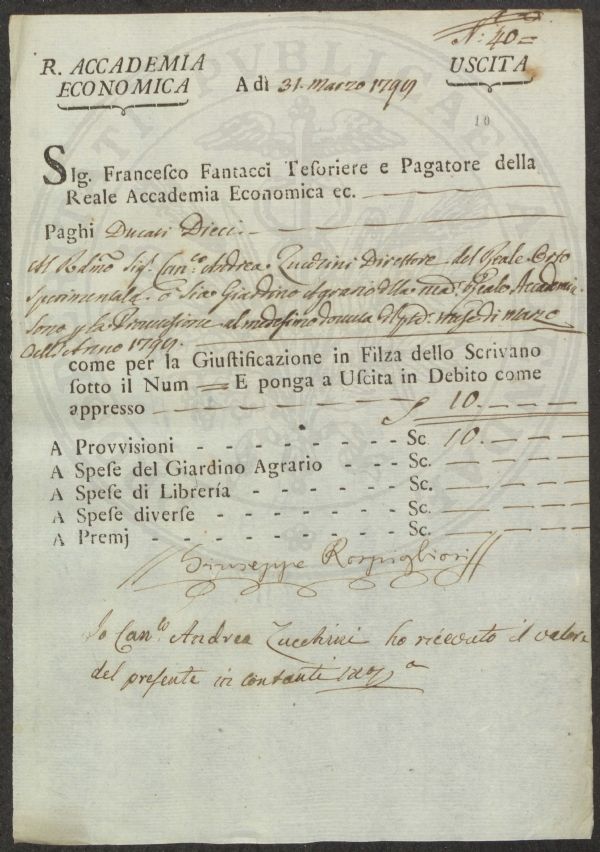 N: 40=
R. ACCADEMIA
ECONOMICA
A dì 31. Marzo 1799
USCITA
10
SIg. Franceſco Fantacci Teſoriere e Pagatore della
Reale Accademia Economica ec.
Paghi Ducati Dieci
Al Rdmo Sigr. Canco. Andrea Zucchini Direttore del Reale Orto
Sperimentale o Sia Giardino Agrario della med. Reale Accademia
Sono p la Provvisione al medesimo dovuta
Dell'Anno 1799.
come per la Giuſtificazione in Filza dello Scrivano
ſotto il Num = E ponga a Uſcita in Debito come
appreſſo - - - - 10. - - -
A Provviſioni - - - - - - - Sc. 10. - - -
A Speſe del Giardino Agrario - - - Sc. - - - -
A Speſe di Librería - - - - - - Sc. - - - -
A Speſe diverſe - - - - - - - Sc. - - - -
A Premj - - - - - - - - - Sc. - - - -
Giuseppe Rospigliosi
Io Canco Andrea Zucchini ho ricevuto il valore
del preſente in contanti